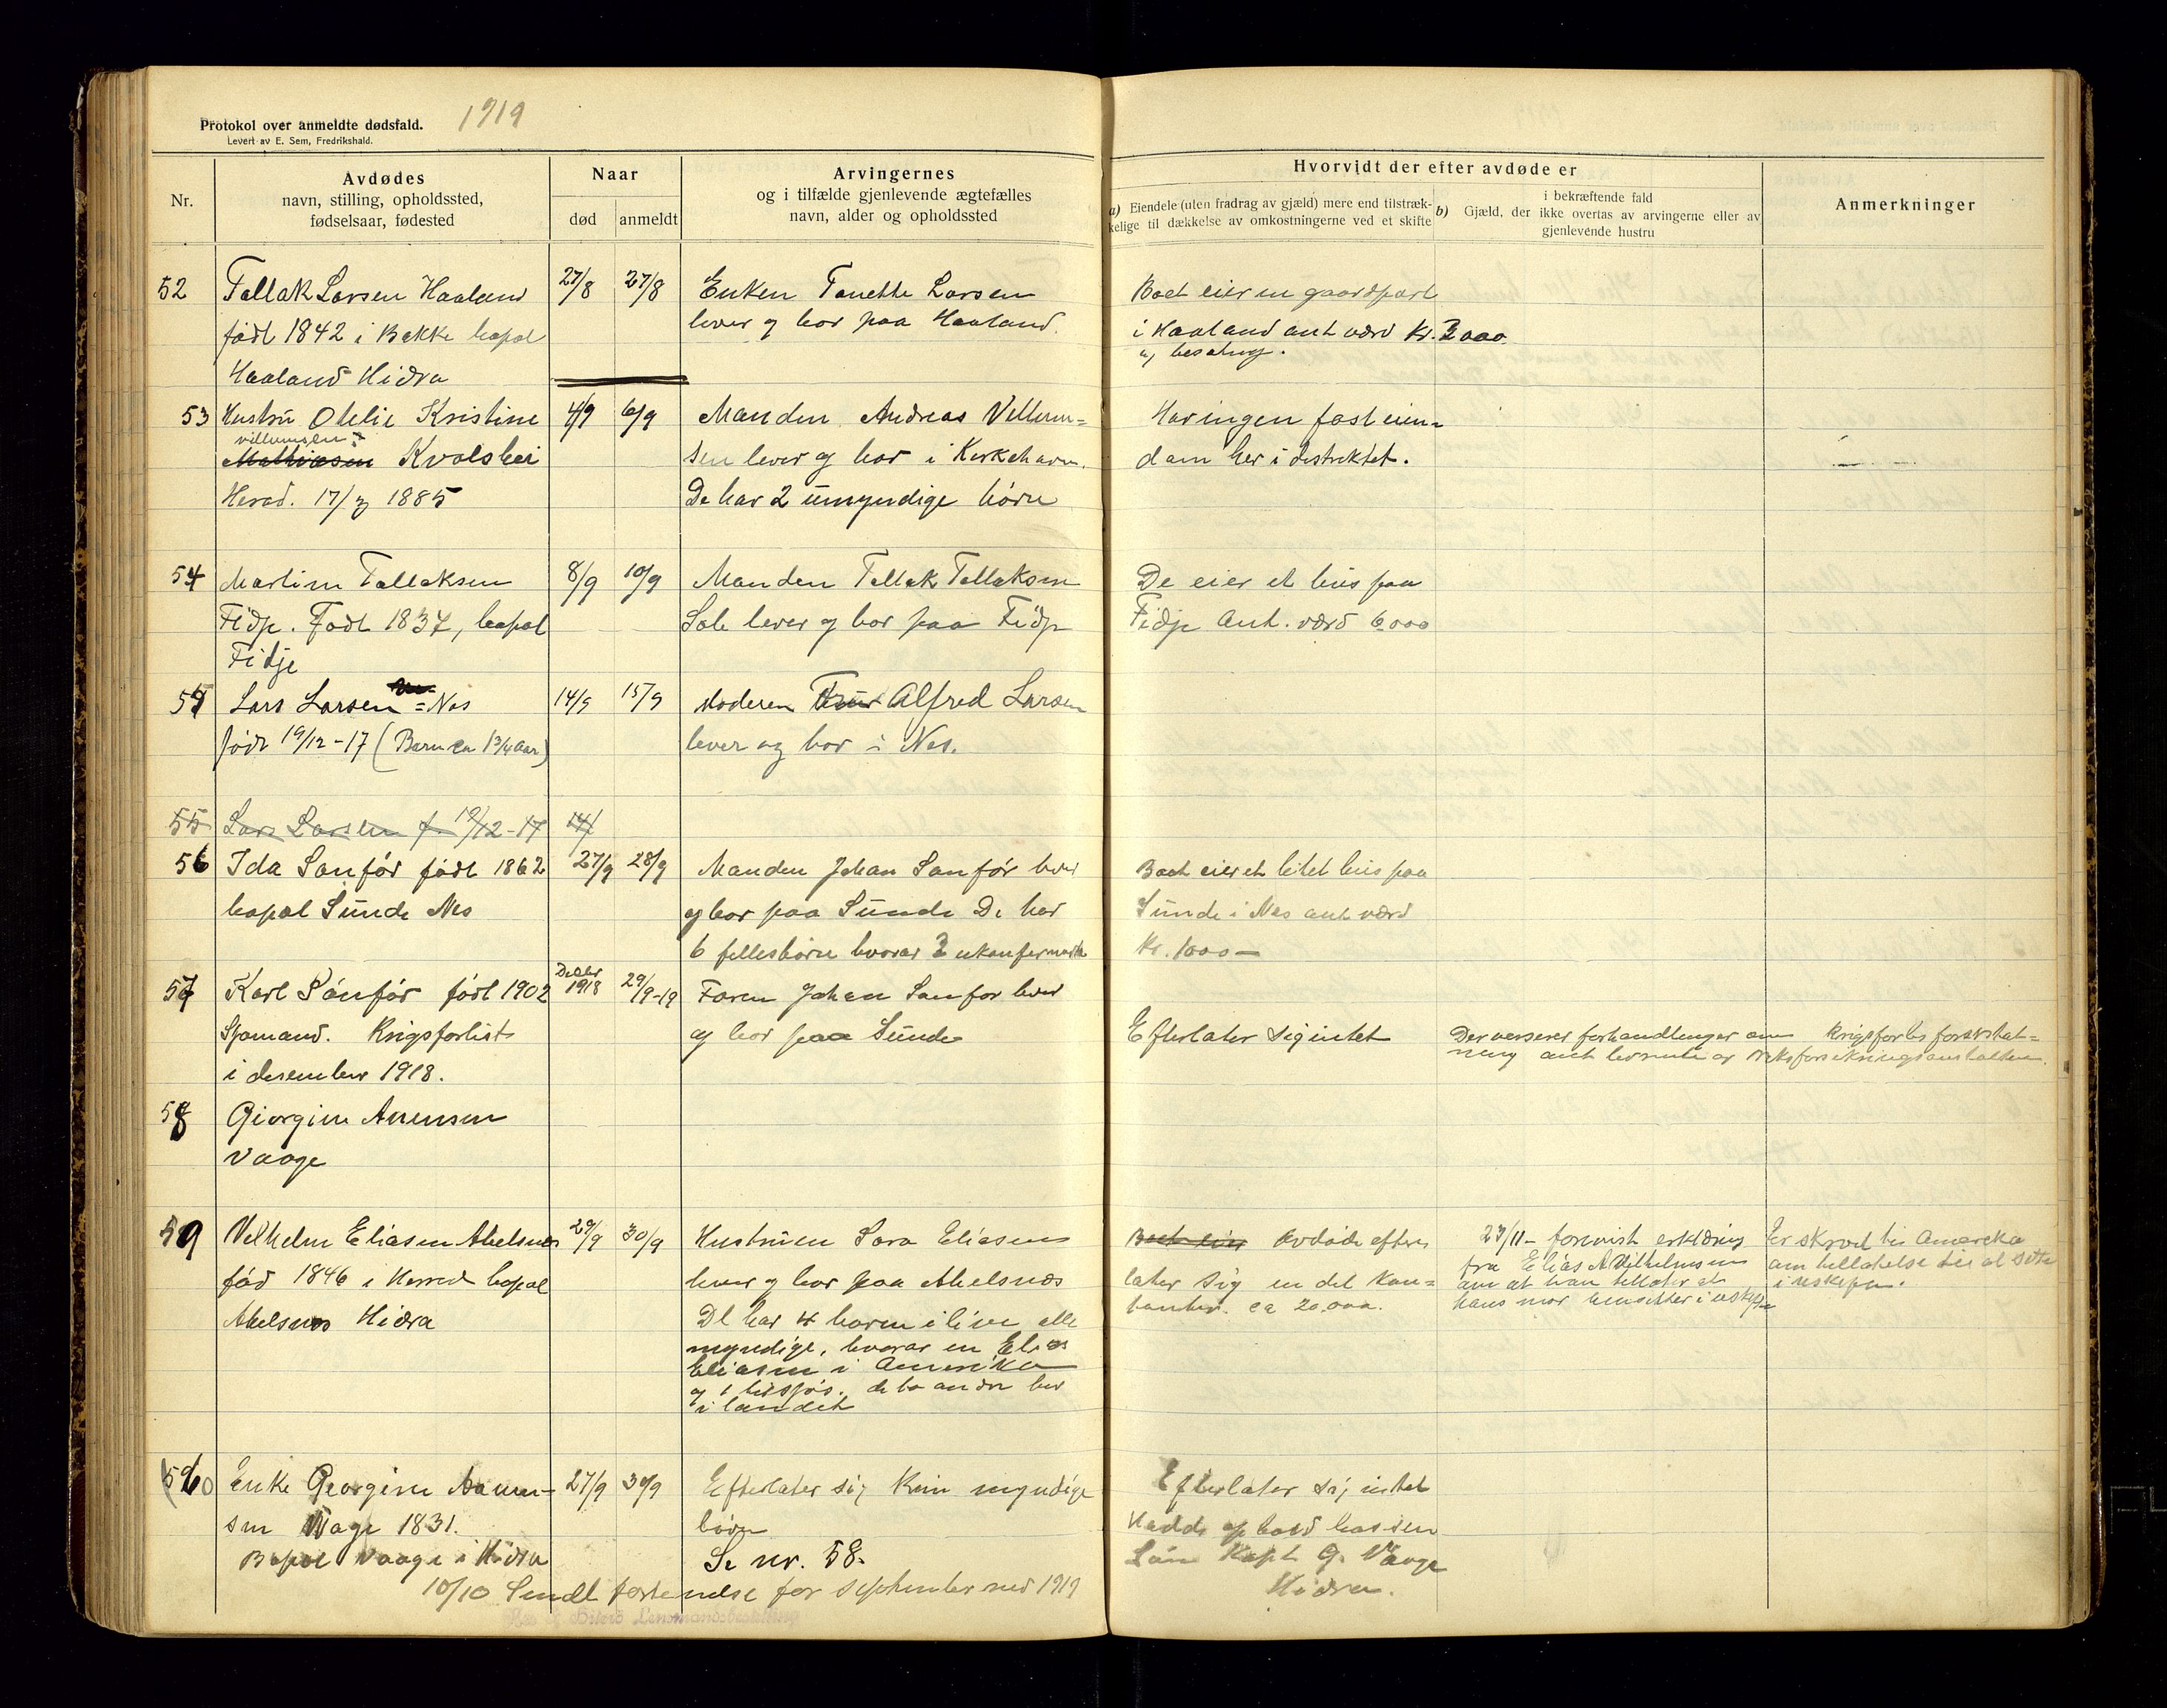 Protokol over anmeldte dødsfald. 1919
Levert av E. Sem, Fredrikshald.
Nr.
Avdødes
navn, stilling, opholdssted,
fødselsaar, fødested
Naar
død
anmeldt
Arvingernes
og i tilfælde gjenlevende ægtefælles
navn, alder og opholdssted
Hvorvidt der efter avdøde er
a) Eiendele (uten fradrag av gjæld) mere end tilstræk-
kelige til dækkelse av omkostningerne ved et skifte
b) Gjæld, der
i bekræftende fald
ikke overtas av arvingerne eller av
gjenlevende hustru
Anmerkninger
52
Tallak Larsen Haaland
født 1842 i Bakke bopæl
Haaland Hidra
27/8
27/8
Enken Tonette Larsen
lever og bor paa Haaland.
Boet eier en gaardpart
i Haaland ant værd Kr. 2000
og besætng.
53
Hustru Otelie Kristine
Villumsen
Mathiasen Kvalshei
Herad. 17/3 1885
4/9
6/9
Manden Andreas Villum=
sen lever og bor i Kirkehavn.
De har 2 umyndige børn
Har ingen fast eien=
dom her i destriktet.
54
Martine Tallaksen
Fidje. Født 1837, bopæl
Fidje
8/9
10/9
Manden Tallak Tallaksen
lever og bor paa Fidje
De eier et hus paa
Fidje Ant. værd 6000
55
Lars Larsen = Nes
født 19/12-17 (Barn ca 1 3/4 aar)
14/9
15/9
Moderen Fru Alfred Larsen
lever og bor i Nes.
55
Lars Larsen f. 19/12-17
14/
56
Ida Sanfór født 1862
bopæl Sunde Nes
27/9
28/9
Manden Johan Sanfór lever
og bor paa Sunde De har
6 fellesbørn hvorav 2 ukonfermerte
Boet eier et litet hus paa
Sunde i Nes ant værd
Kr. 1000 —
57
Karl Sanfór født 1902
Sjømand. Krigsforlist
i desember 1918.
Desbr
1918
29/9-19
Faren Johan Sanfor lever
og bor paa Sunde
Efterlater sig intet
Der verserer forhandlinger om krigsforlis forerstat=
ning ant av Riksforsikringsanstalten.
58
Giorgine Anensen
Vaage
59
Vilhelm Eliasen Abelsnes
fød 1846 i Herred bopæl
Abelsnes Hidra
29/9
30/9
Hustruen Sara Eliasen
lever og bor paa Abelsnæs
De har 4 barn i live alle
myndige, hvorav en Elias
Eliasen i Amerika
og 1 tilsjøs. de to andre her
i landet
Boet eier Avdøde efter
later sig en del kon=
tanter. ca 20,000.
27/11 - forevist erklæring
fra Elias A Vilhelmsen
om at han tillater at
hans mor hensitter i uskifte
Er skrevet til Amerika
om tillatelse til at sitte
i uskifte.
60
Enke Georgine Aanen-
sen Vaage 1831.
Bopæl Vaage i Hidra
27/9
30/9
Efterlater sig kun myndige
børn
Se nr. 58.
Efterlater sig intet
Hadde ophold hos sin
Søn Kapt G. Vaage
Hidra.
10/10 Sendt fortegnelse for September md 1919